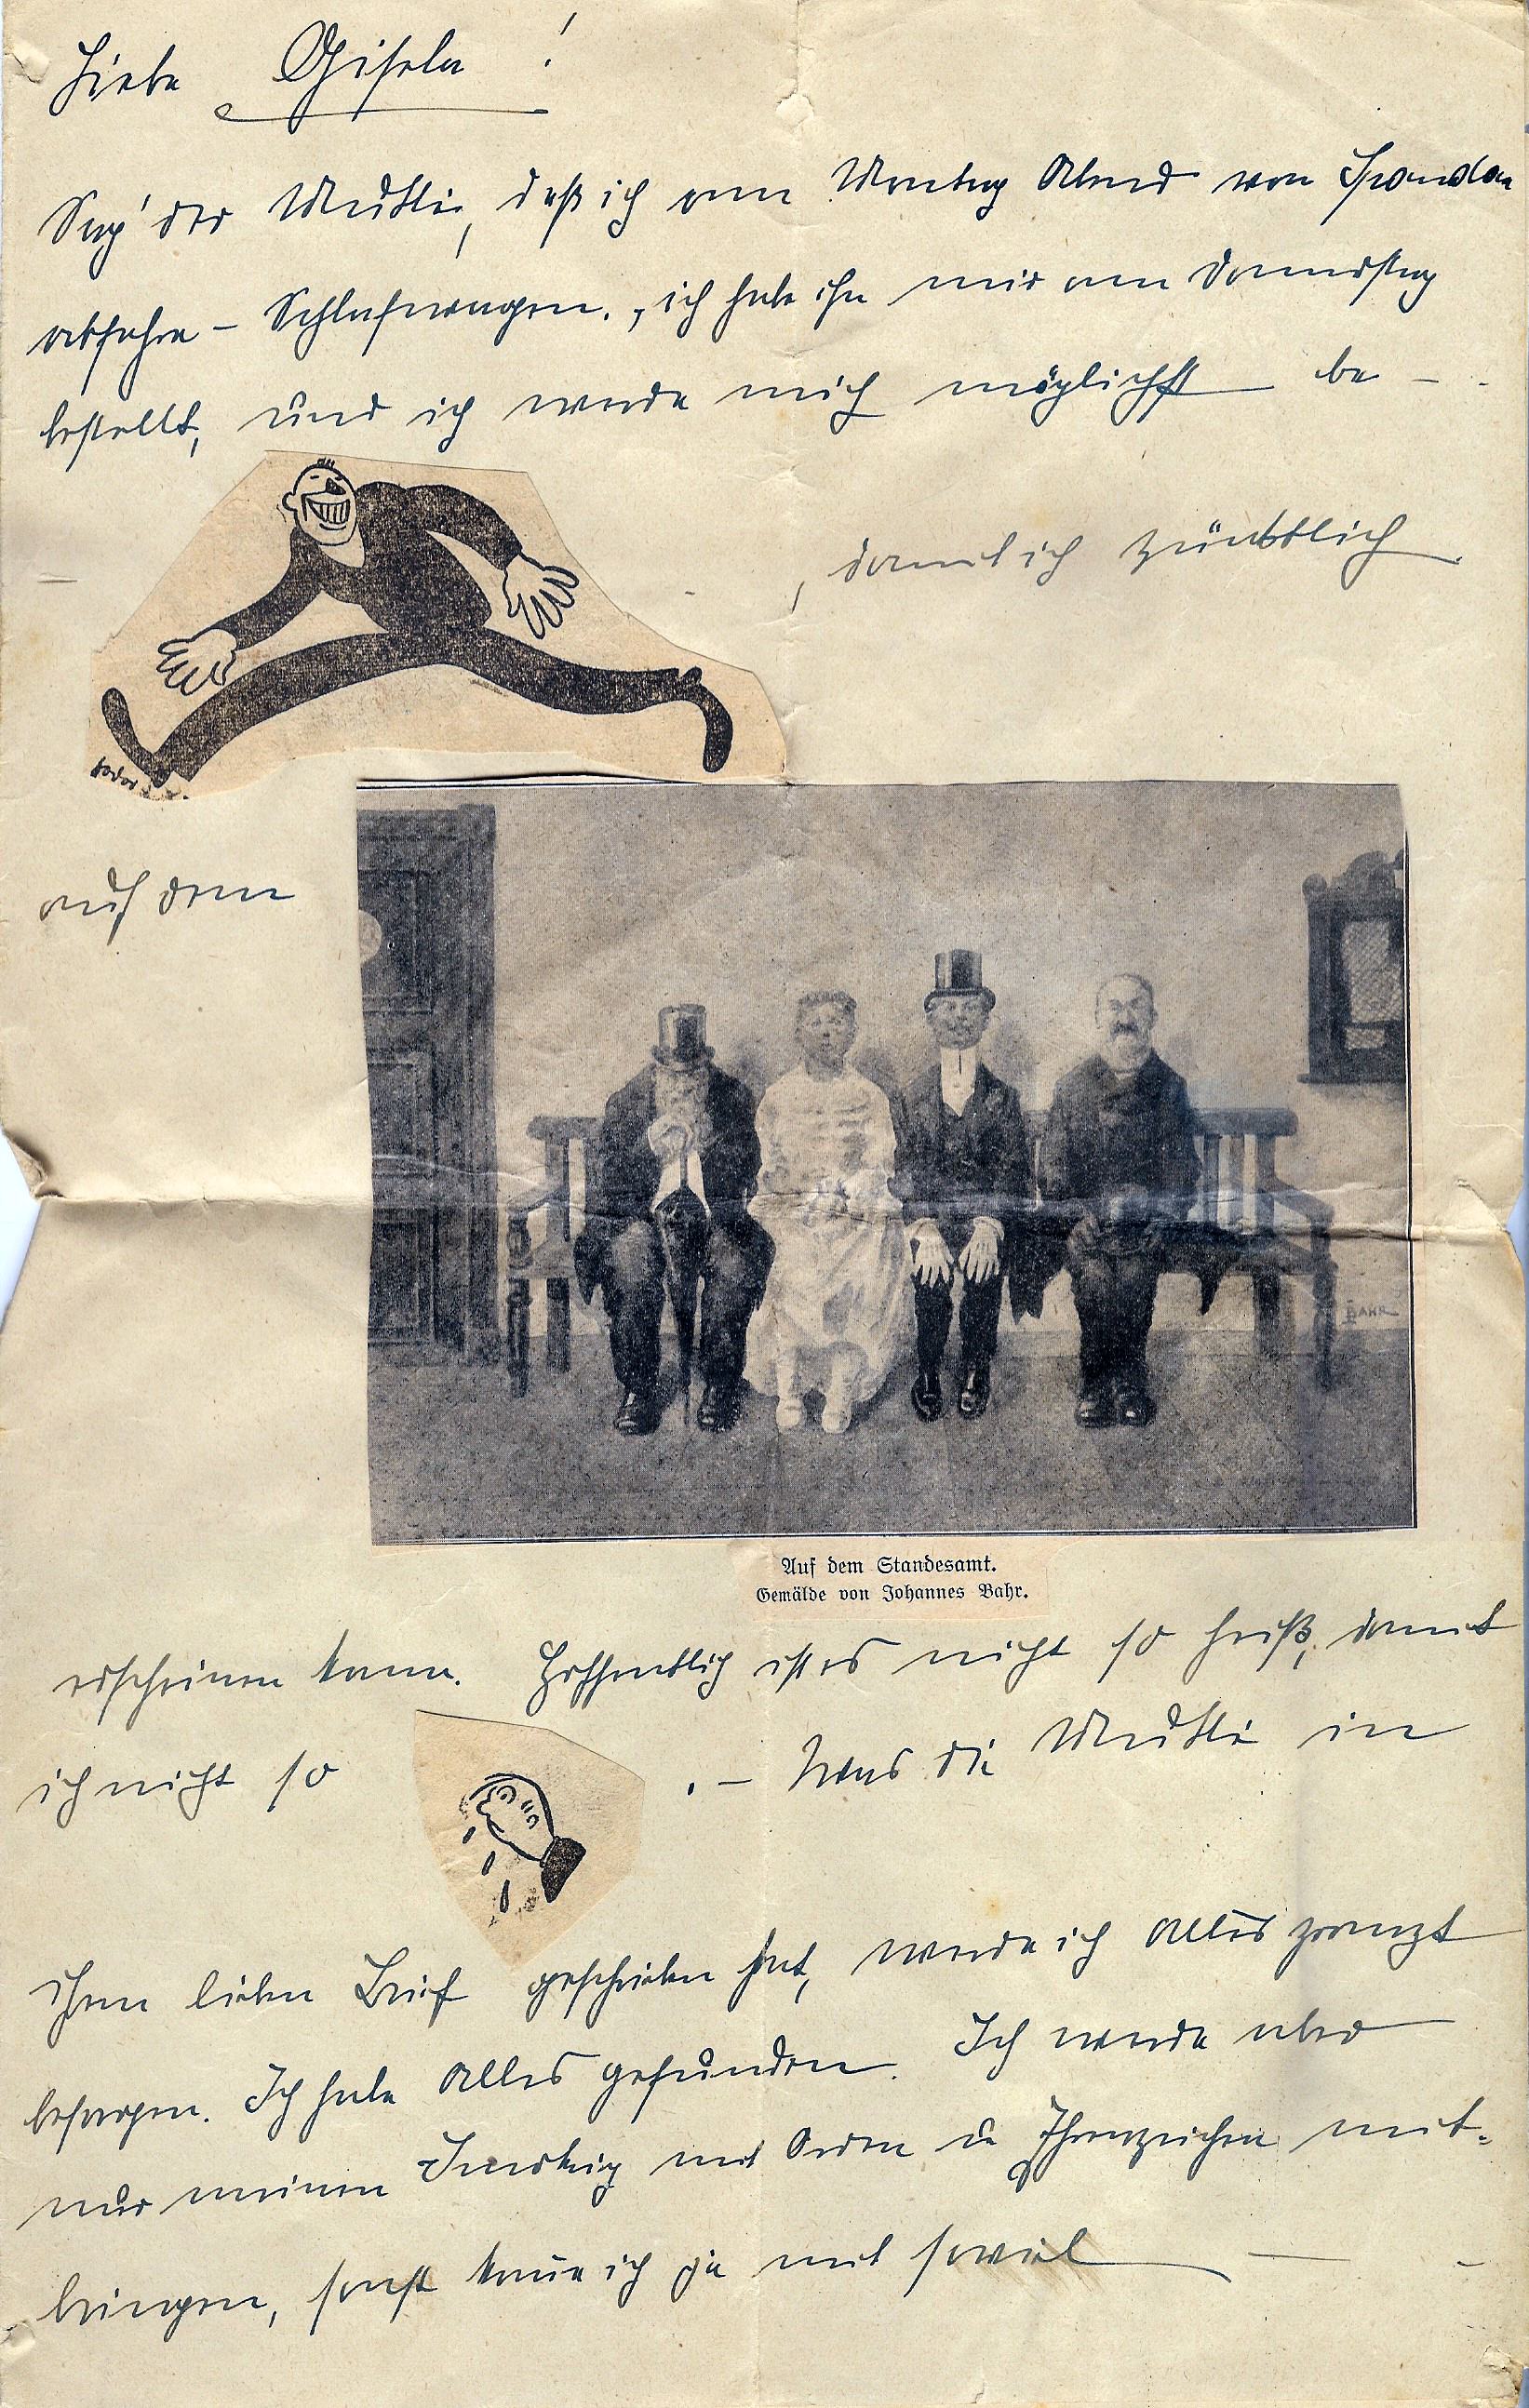 Liebe Gisela!
Sag' der Mutti, daß ich am Montag Abend von Spandau
abfahre – Schlafwagen., ich habe ihn mir am Donnerstag
bestellt, und ich werde mich möglichst be – -
, damit ich pünktlich
auf dem
BAHR
Auf dem Standesamt.
Gemälde von Johannes Bahr.
erscheinen kann. Hoffentlich ist es nicht so heiß, damit
ich nicht so . – Was die Mutti in
ihrem lieben Brief geschrieben hat, werde ich Alles
besorgen. Ich habe Alles gefunden. Ich werde aber
nur meinen mit Orden u Ehrenzeichen mit-
bringen, sonst kann ich ja mit soviel – -